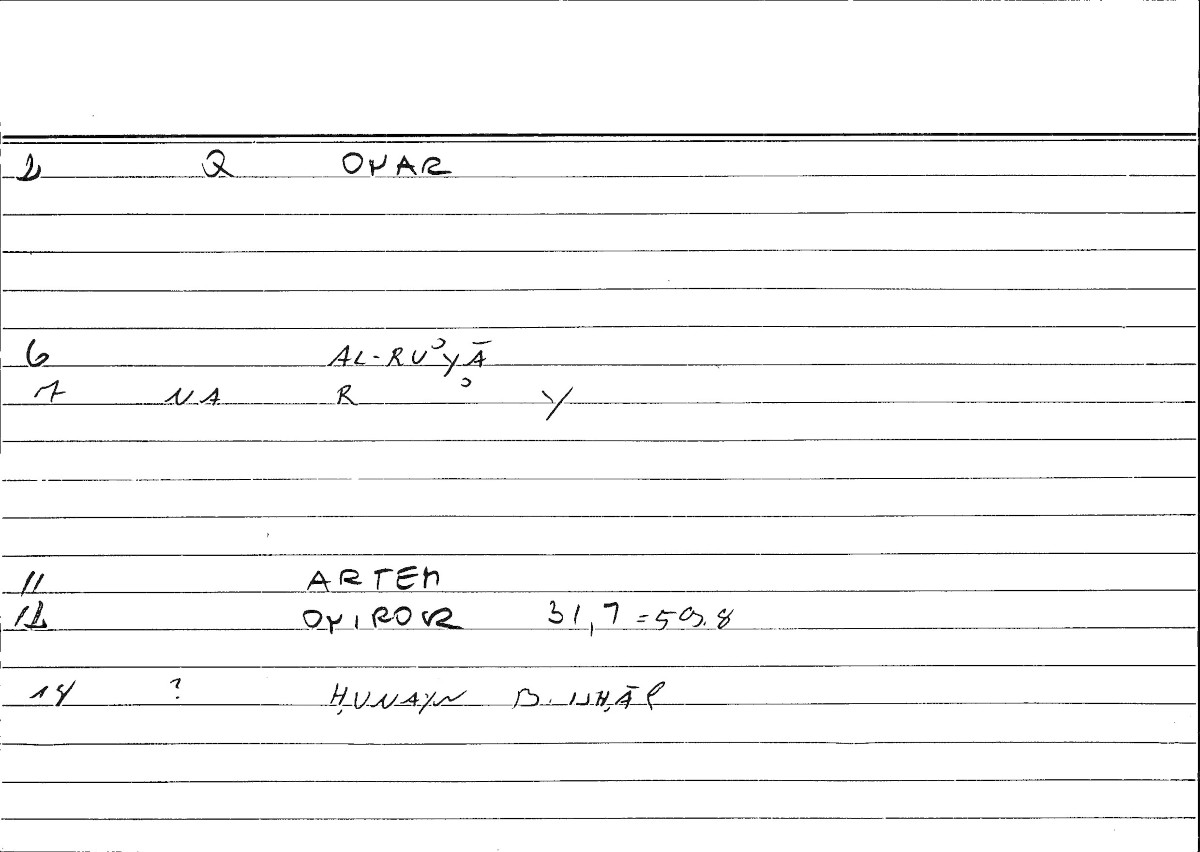 2 Q ONAR
6 AL-RUʾYĀ
7 NA R ʾ Y
11 ARTEM
12 ONIROCR 31,7 = 59.8
14 ? ḤUNAYN B. ISḤĀQ